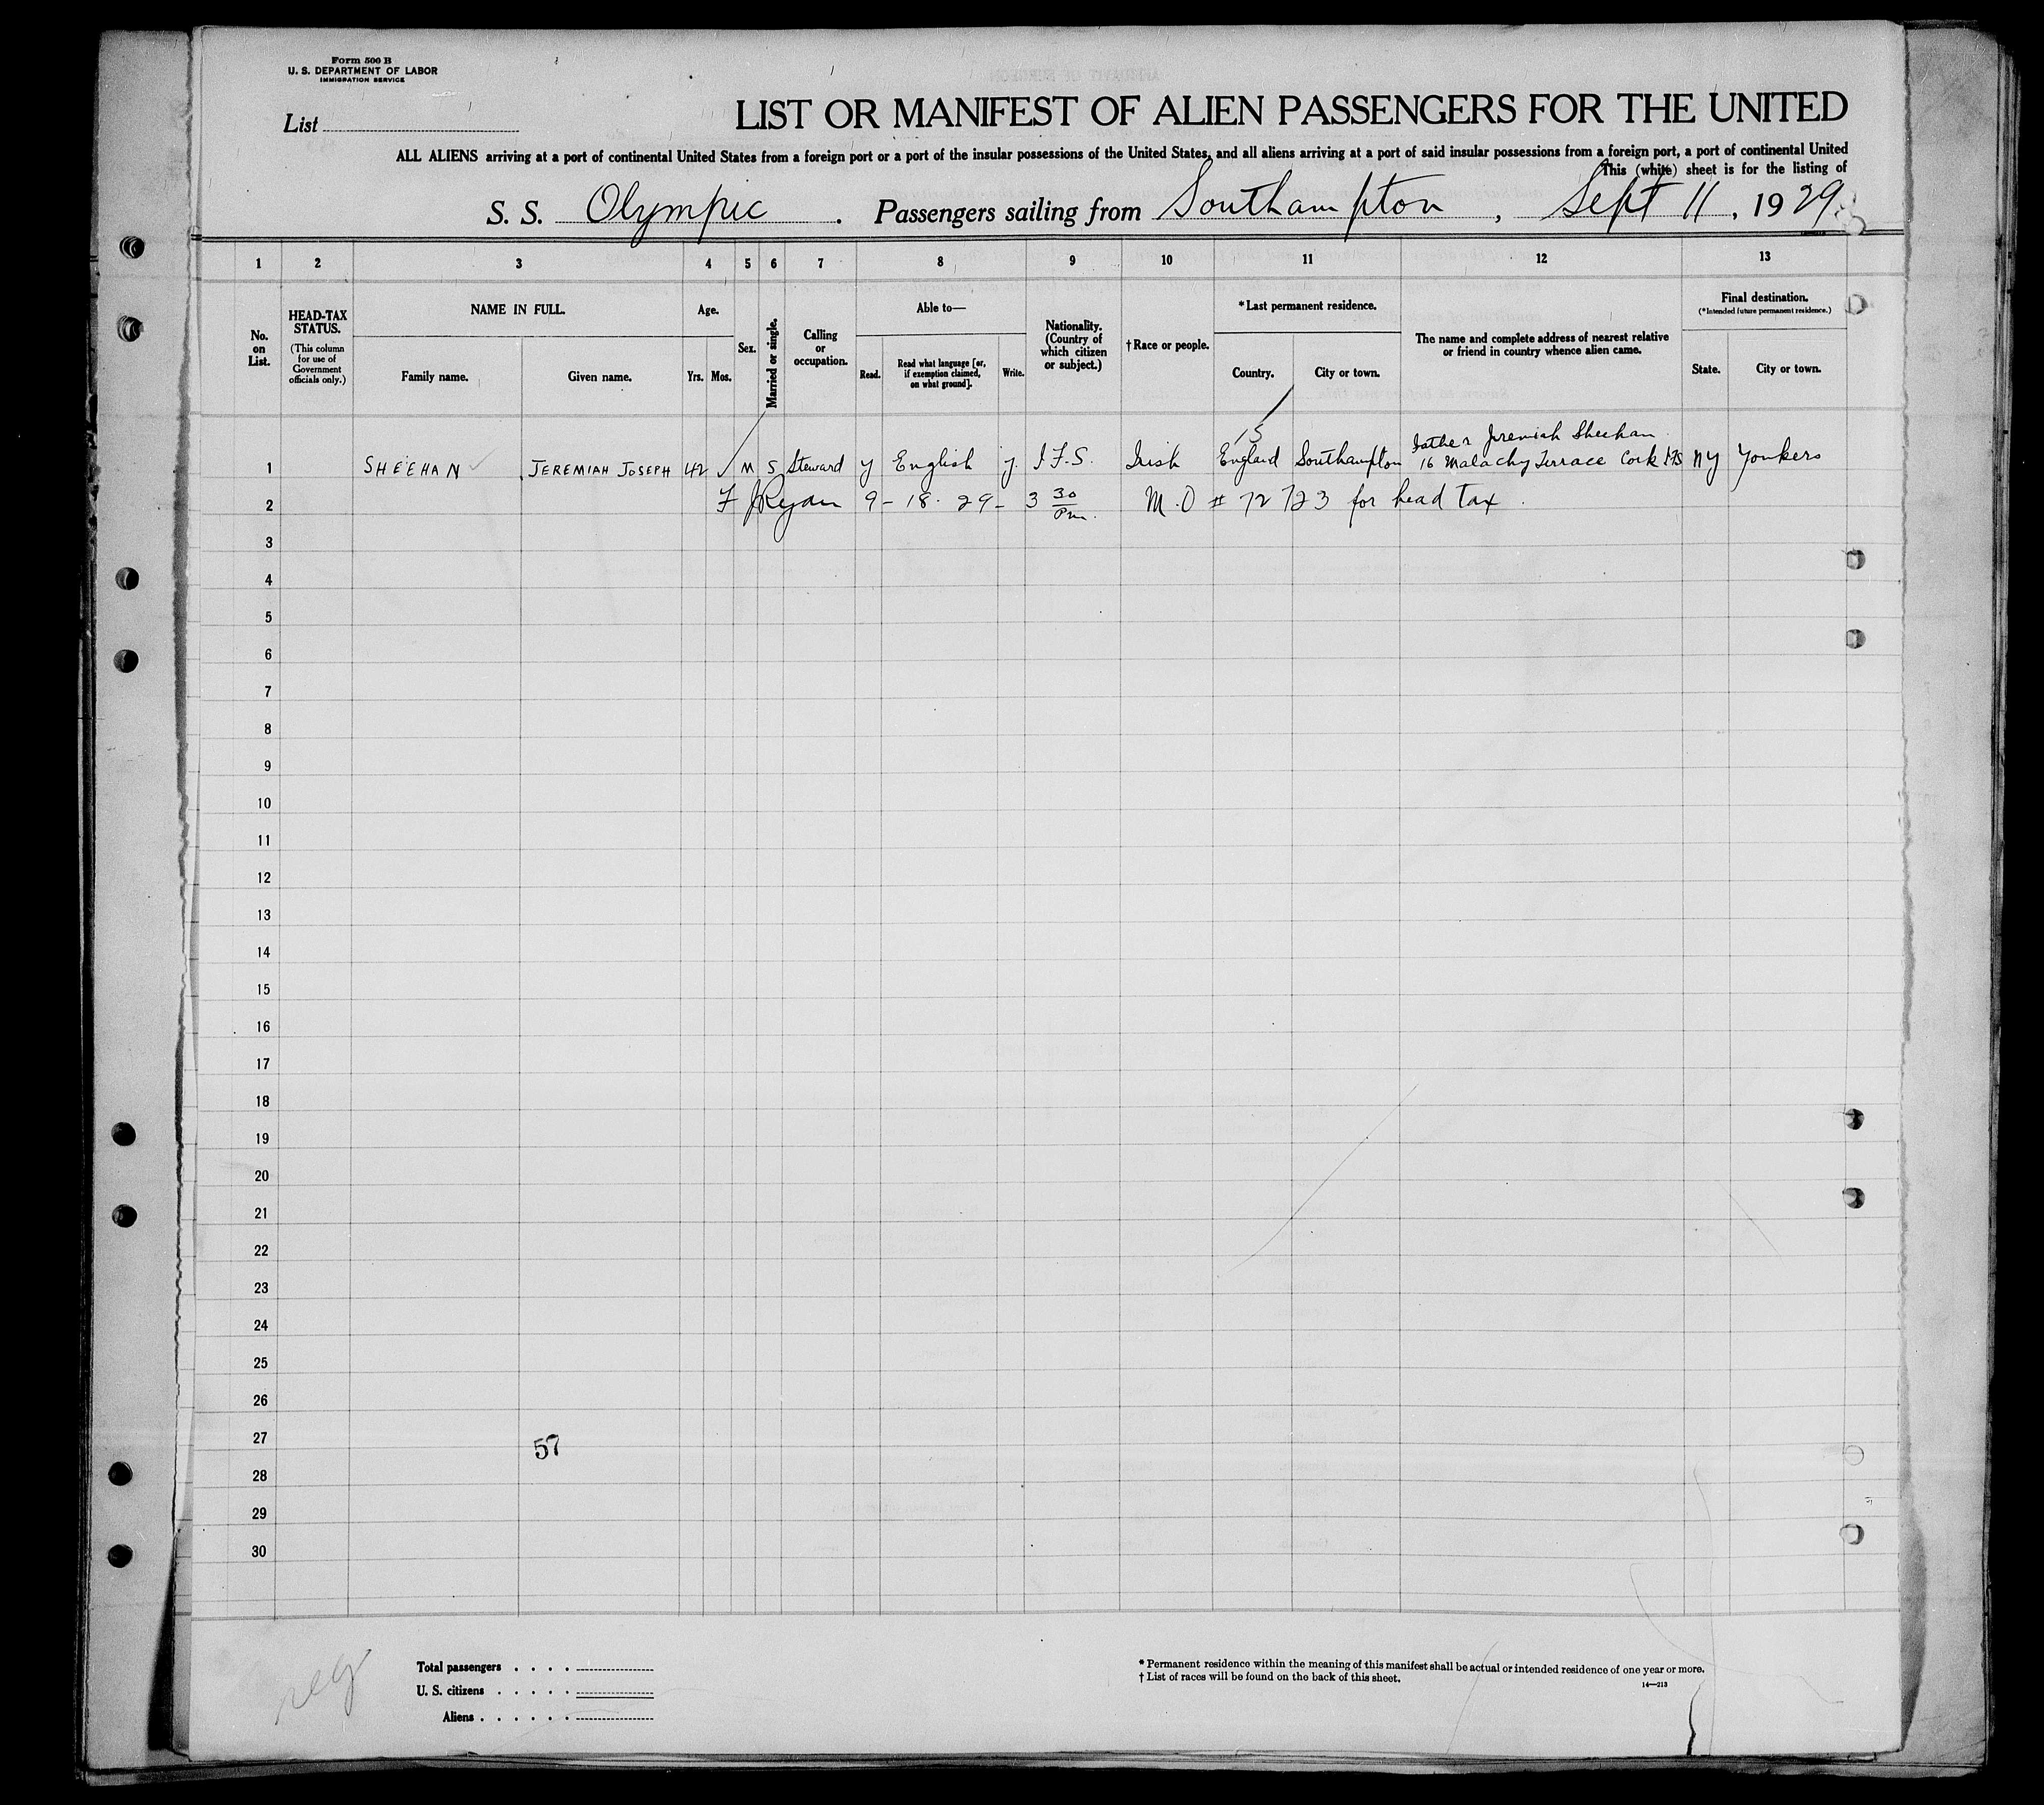 Form 500 B
U. S. DEPARTMENT OF LABOR
IMMIGRATION SERVICE
List
LIST OR MANIFEST OF ALIEN PASSENGERS FOR THE UNITED
ALL ALIENS arriving at a port of continental United States from a foreign port or a port of the insular possessions of the United States, and all aliens arriving at a port of said insular possessions from a foreign port, a port of continental United
This (white) sheet is for the listing of
S. S. Olympic . Passengers sailing from Southampton , Sept 11 , 1929
1 2 3 4 5 6 7 8 9 10 11 12 13
No. on List.
HEAD-TAX STATUS.
(This column for use of Government officials only.)
NAME IN FULL.
Family name. Given name.
Age.
Yrs. Mos.
Sex.
Married or single.
Calling or occupation.
Able to—
Read. Read what language [or, if exemption claimed, on what ground]. Write.
Nationality. (Country of which citizen or subject.)
† Race or people.
* Last permanent residence.
Country. City or town.
The name and complete address of nearest relative or friend in country whence alien came.
Final destination.
(* Intended future permanent residence.)
State. City or town.
15
Father Jeremiah Sheehan
1 SHEEHAN JEREMIAH JOSEPH 42 M S Steward y English y. I.F.S. Irish England Southampton 16 Malachy Terrace Cork IFS NY Yonkers
2 F J Ryan 9-18-29- 3 30 Pm. M.O # 72723 for head tax.
3
4
5
6
7
8
9
10
11
12
13
14
15
16
17
18
19
20
21
22
23
24
25
26
27
57
28
29
30
Total passengers . . . .
U. S. citizens . . . . .
Aliens . . . . . .
* Permanent residence within the meaning of this manifest shall be actual or intended residence of one year or more.
† List of races will be found on the back of this sheet.
14—213